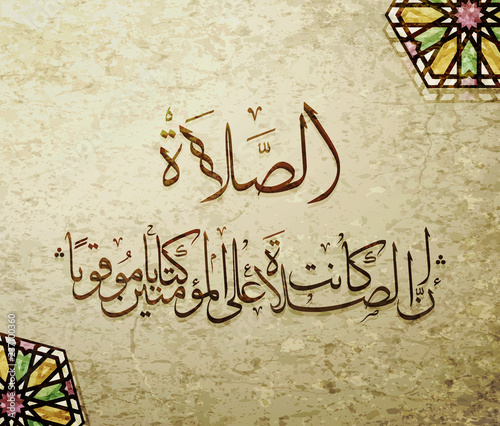 الصَّلَاة
"إنَّ الصلاة كانت على المؤمنين كتابًا موقوتًا"